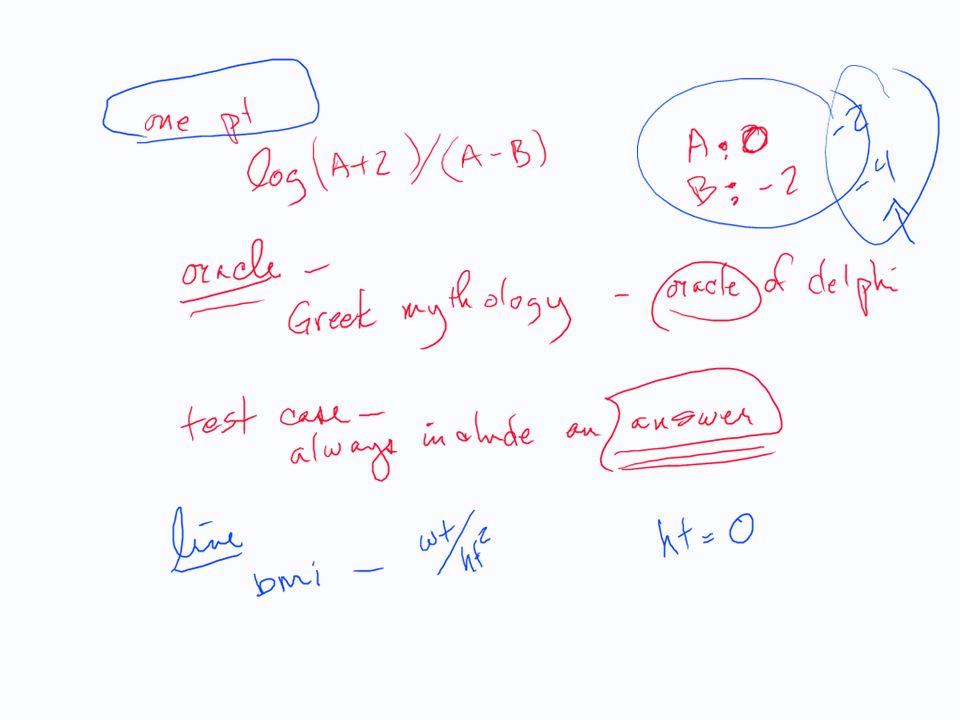 one pt
log(A+2)/(A-B)
A: 0
B: -2
-2
-4
oracle -
Greek mythology - oracle of delphi
test case -
always include an answer
line
bmi - wt/ht²
ht = 0